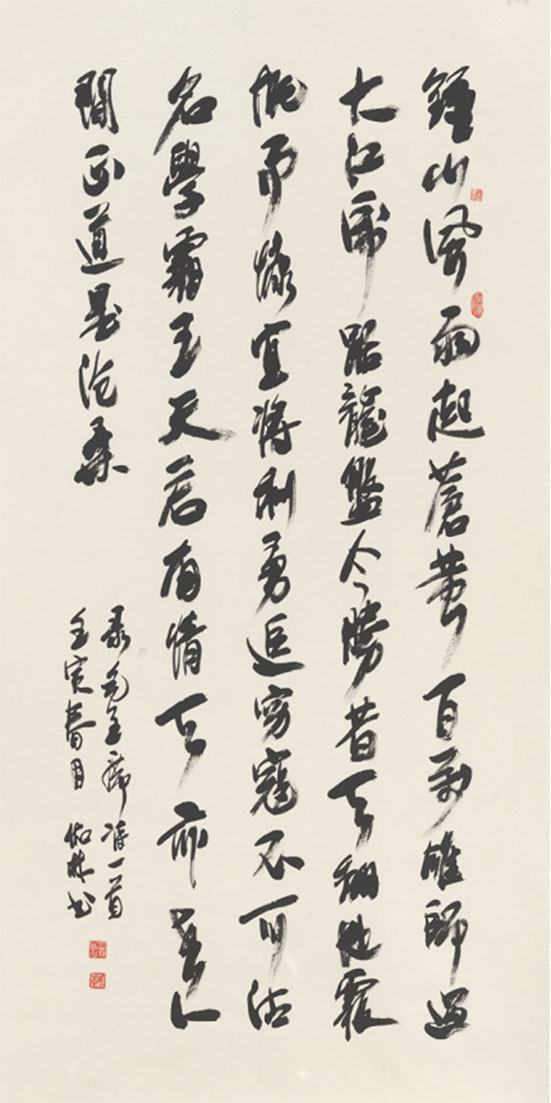 鍾山風雨起蒼黃百万雄師過
大江虎踞龍盤今勝昔天翻地覆
慨而慷宜將剩勇追窮寇不可沽
名學霸王天若有情天亦老人
間正道是滄桑
录毛主席詩一首
壬寅春月